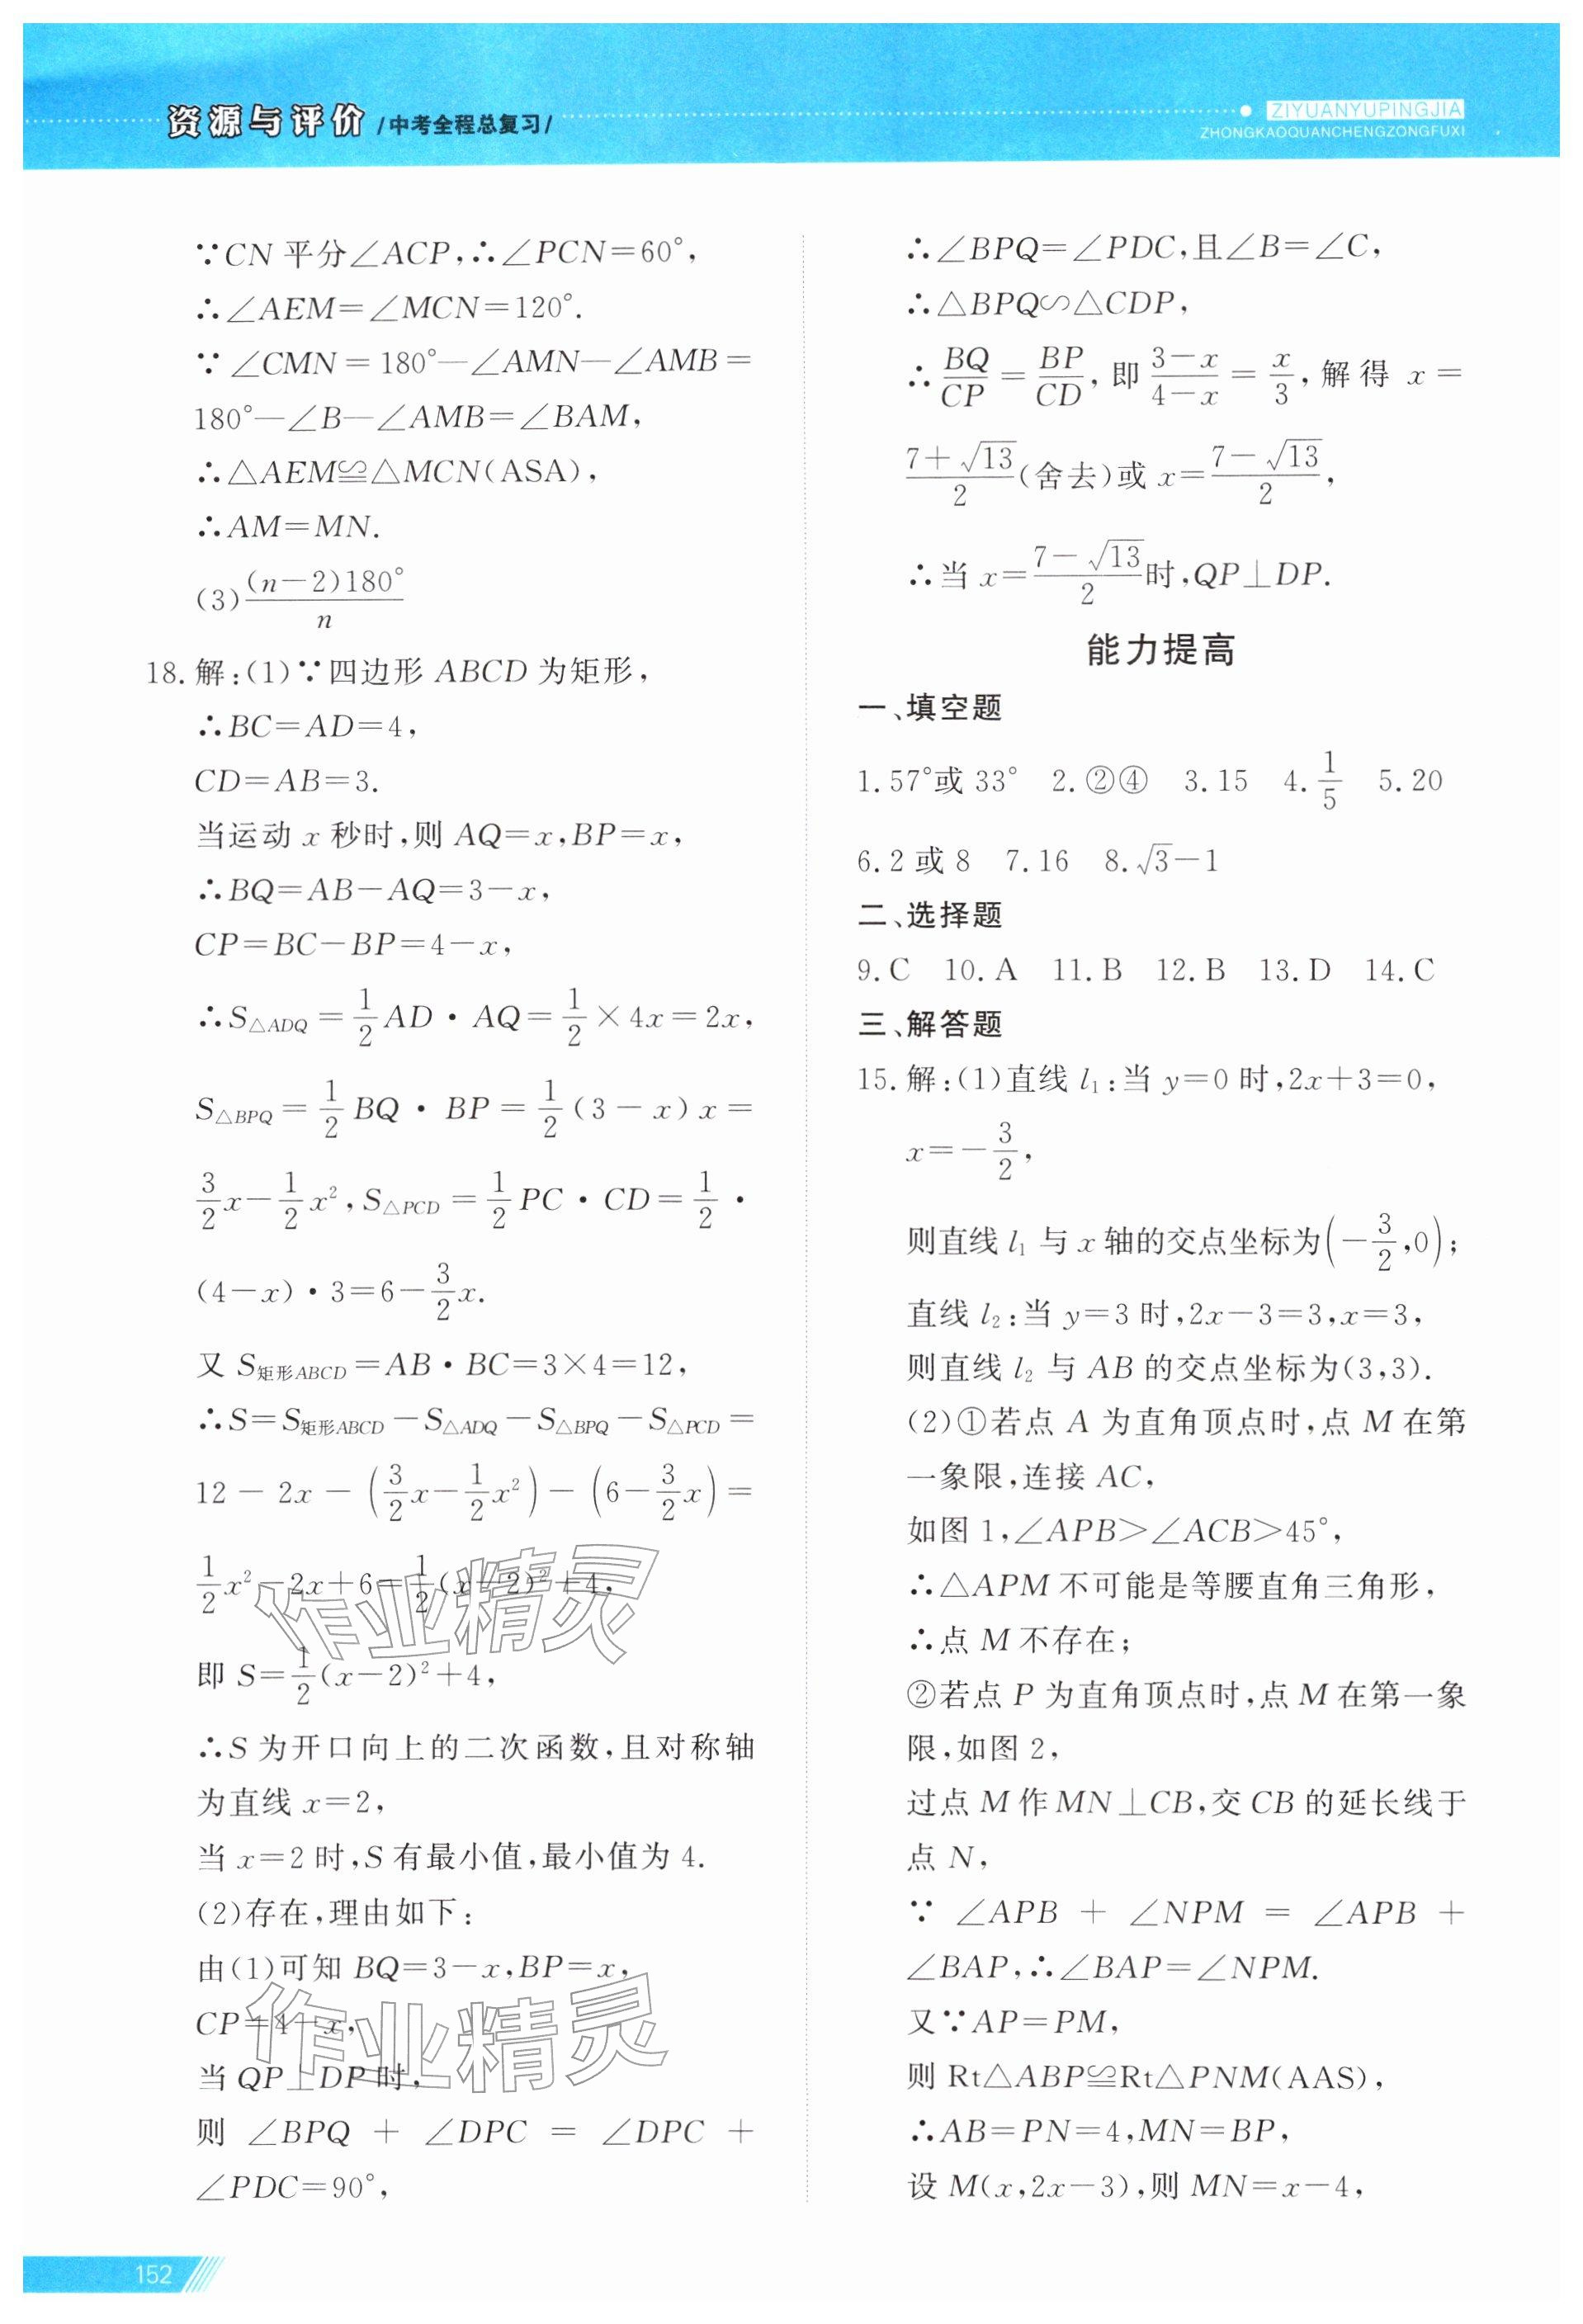 资源与评价 /中考全程总复习/
ZIYUANYUPINGJIA
ZHONGKAOQUANCHENGZONGFUXI
∵CN 平分∠ACP,∴∠PCN=60°,
∴∠AEM=∠MCN=120°.
∵∠CMN=180°—∠AMN—∠AMB=
180°—∠B—∠AMB=∠BAM,
∴△AEM≌△MCN(ASA),
∴AM=MN.
(3)\frac{(n-2)180°}{n}
18. 解:(1)∵四边形 ABCD 为矩形,
∴BC=AD=4,
CD=AB=3.
当运动 x 秒时,则 AQ=x,BP=x,
∴BQ=AB-AQ=3-x,
CP=BC-BP=4-x,
∴S△ADQ=\frac{1}{2}AD·AQ=\frac{1}{2}×4x=2x,
S△BPQ=\frac{1}{2}BQ·BP=\frac{1}{2}(3-x)x=
\frac{3}{2}x-\frac{1}{2}x²,S△PCD=\frac{1}{2}PC·CD=\frac{1}{2}·
(4-x)·3=6-\frac{3}{2}x.
又 S矩形ABCD=AB·BC=3×4=12,
∴S=S矩形ABCD-S△ADQ-S△BPQ-S△PCD=
12-2x-(\frac{3}{2}x-\frac{1}{2}x²)-(6-\frac{3}{2}x)=
\frac{1}{2}x²-2x+6=\frac{1}{2}(x-2)²+4,
即 S=\frac{1}{2}(x-2)²+4,
∴S 为开口向上的二次函数,且对称轴
为直线 x=2,
当 x=2 时,S 有最小值,最小值为 4.
(2)存在,理由如下:
由(1)可知 BQ=3-x,BP=x,
CP=4-x,
当 QP⊥DP 时,
则 ∠BPQ + ∠DPC = ∠DPC +
∠PDC=90°,
∴∠BPQ=∠PDC,且∠B=∠C,
∴△BPQ∽△CDP,
∴\frac{BQ}{CP}=\frac{BP}{CD},即\frac{3-x}{4-x}=\frac{x}{3},解得 x=
\frac{7+√13}{2}(舍去)或 x=\frac{7-√13}{2},
∴当 x=\frac{7-√13}{2}时,QP⊥DP.
能力提高
一、填空题
1.57°或 33° 2.②④ 3.15 4.\frac{1}{5} 5.20
6.2 或 8 7.16 8.√3-1
二、选择题
9.C 10.A 11.B 12.B 13.D 14.C
三、解答题
15. 解:(1)直线 l₁:当 y=0 时,2x+3=0,
x=-\frac{3}{2},
则直线 l₁ 与 x 轴的交点坐标为(-\frac{3}{2},0);
直线 l₂:当 y=3 时,2x-3=3,x=3,
则直线 l₂ 与 AB 的交点坐标为(3,3).
(2)①若点 A 为直角顶点时,点 M 在第
一象限,连接 AC,
如图 1,∠APB>∠ACB>45°,
∴△APM 不可能是等腰直角三角形,
∴点 M 不存在;
②若点 P 为直角顶点时,点 M 在第一象
限,如图 2,
过点 M 作 MN⊥CB,交 CB 的延长线于
点 N,
∵ ∠APB + ∠NPM = ∠APB +
∠BAP,∴∠BAP=∠NPM.
又∵AP=PM,
则 Rt△ABP≌Rt△PNM(AAS),
∴AB=PN=4,MN=BP,
设 M(x,2x-3),则 MN=x-4,
作业精灵
作业精灵
152